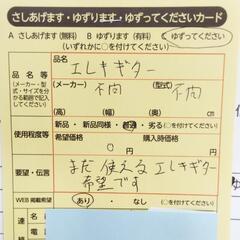 さしあげます・ゆずります・ゆずってくださいカード
A さしあげます(無料) B ゆずります(有料) C ゆずってください
(いずれかに○を付けてください)
品名等
(メーカー・型式・サイズを分かる範囲で記入してください)
(品名)
エレキギター
(メーカー) 不問 (型式) 不問
(高) (幅) (
使用程度等
新品・新品同様・普通・劣る(○を付けてくだ
希望価格
0 円
要望・伝言
まだ使えるエレキギター
希望です
WEB掲載希望
あり・なし (○を付けてくださ
連絡
電